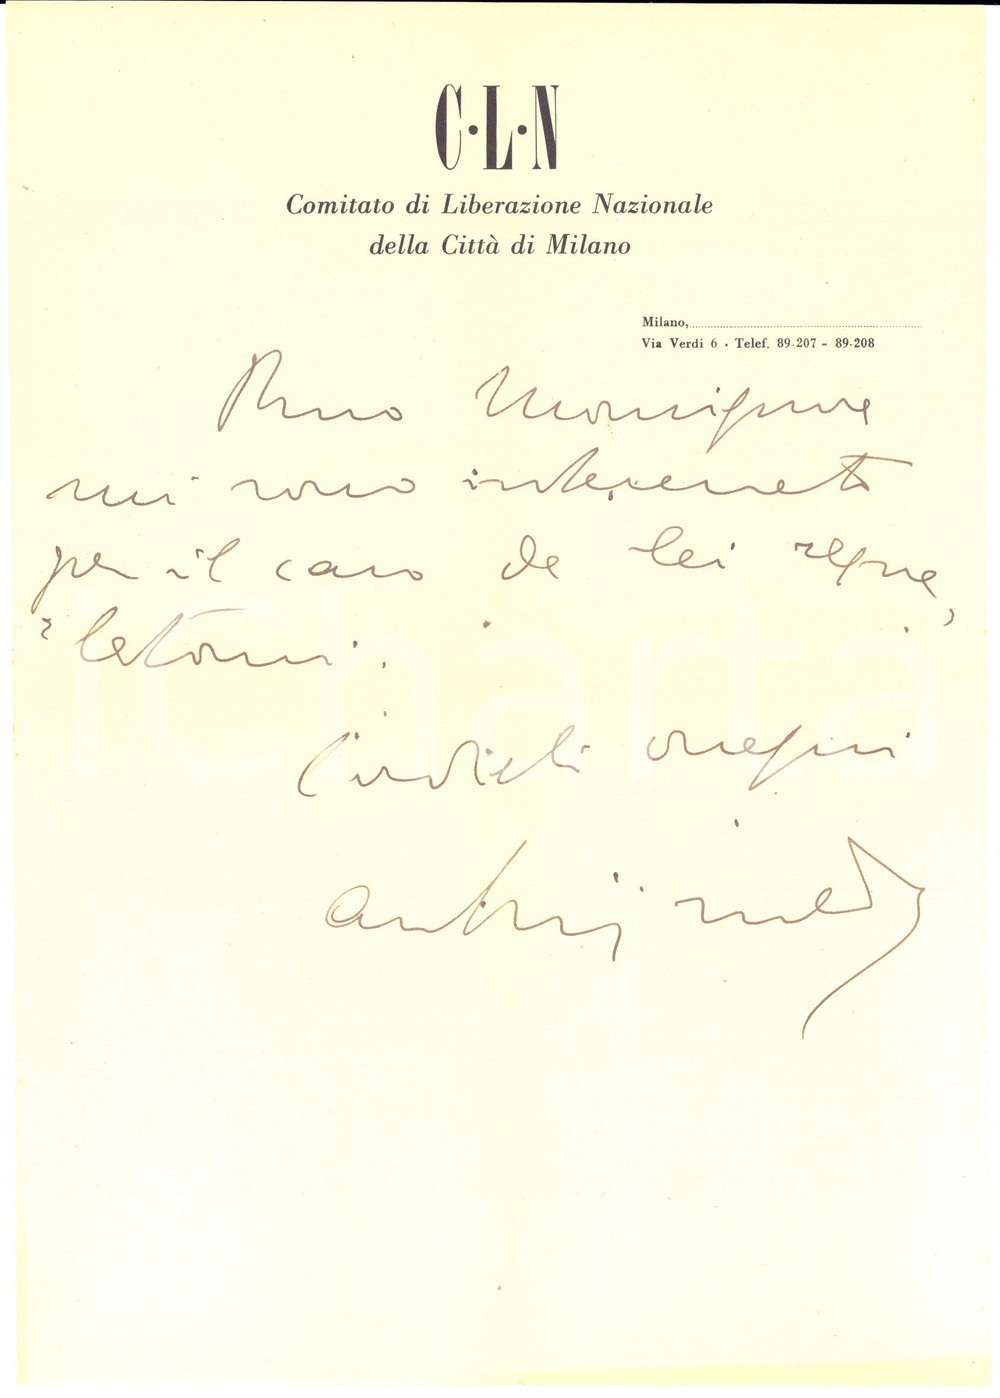 C·L·N
Comitato di Liberazione Nazionale
della Città di Milano
Milano,
Via Verdi 6 - Telef. 89-207 - 89-208
Monsignore
mi sono interessato
per il caso da lei segna=
=latomi.
Cordiali ossequi
iCharta